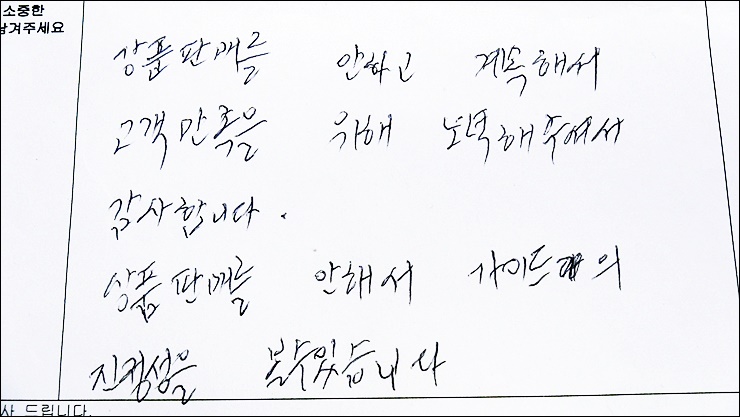 소중한
남겨주세요
상품판매를 안하고 계속해서
고객만족을 위해 노력해주셔서
감사합니다.
상품판매를 안해서 가이드의
진정성을 볼수있습니다
사 드립니다.